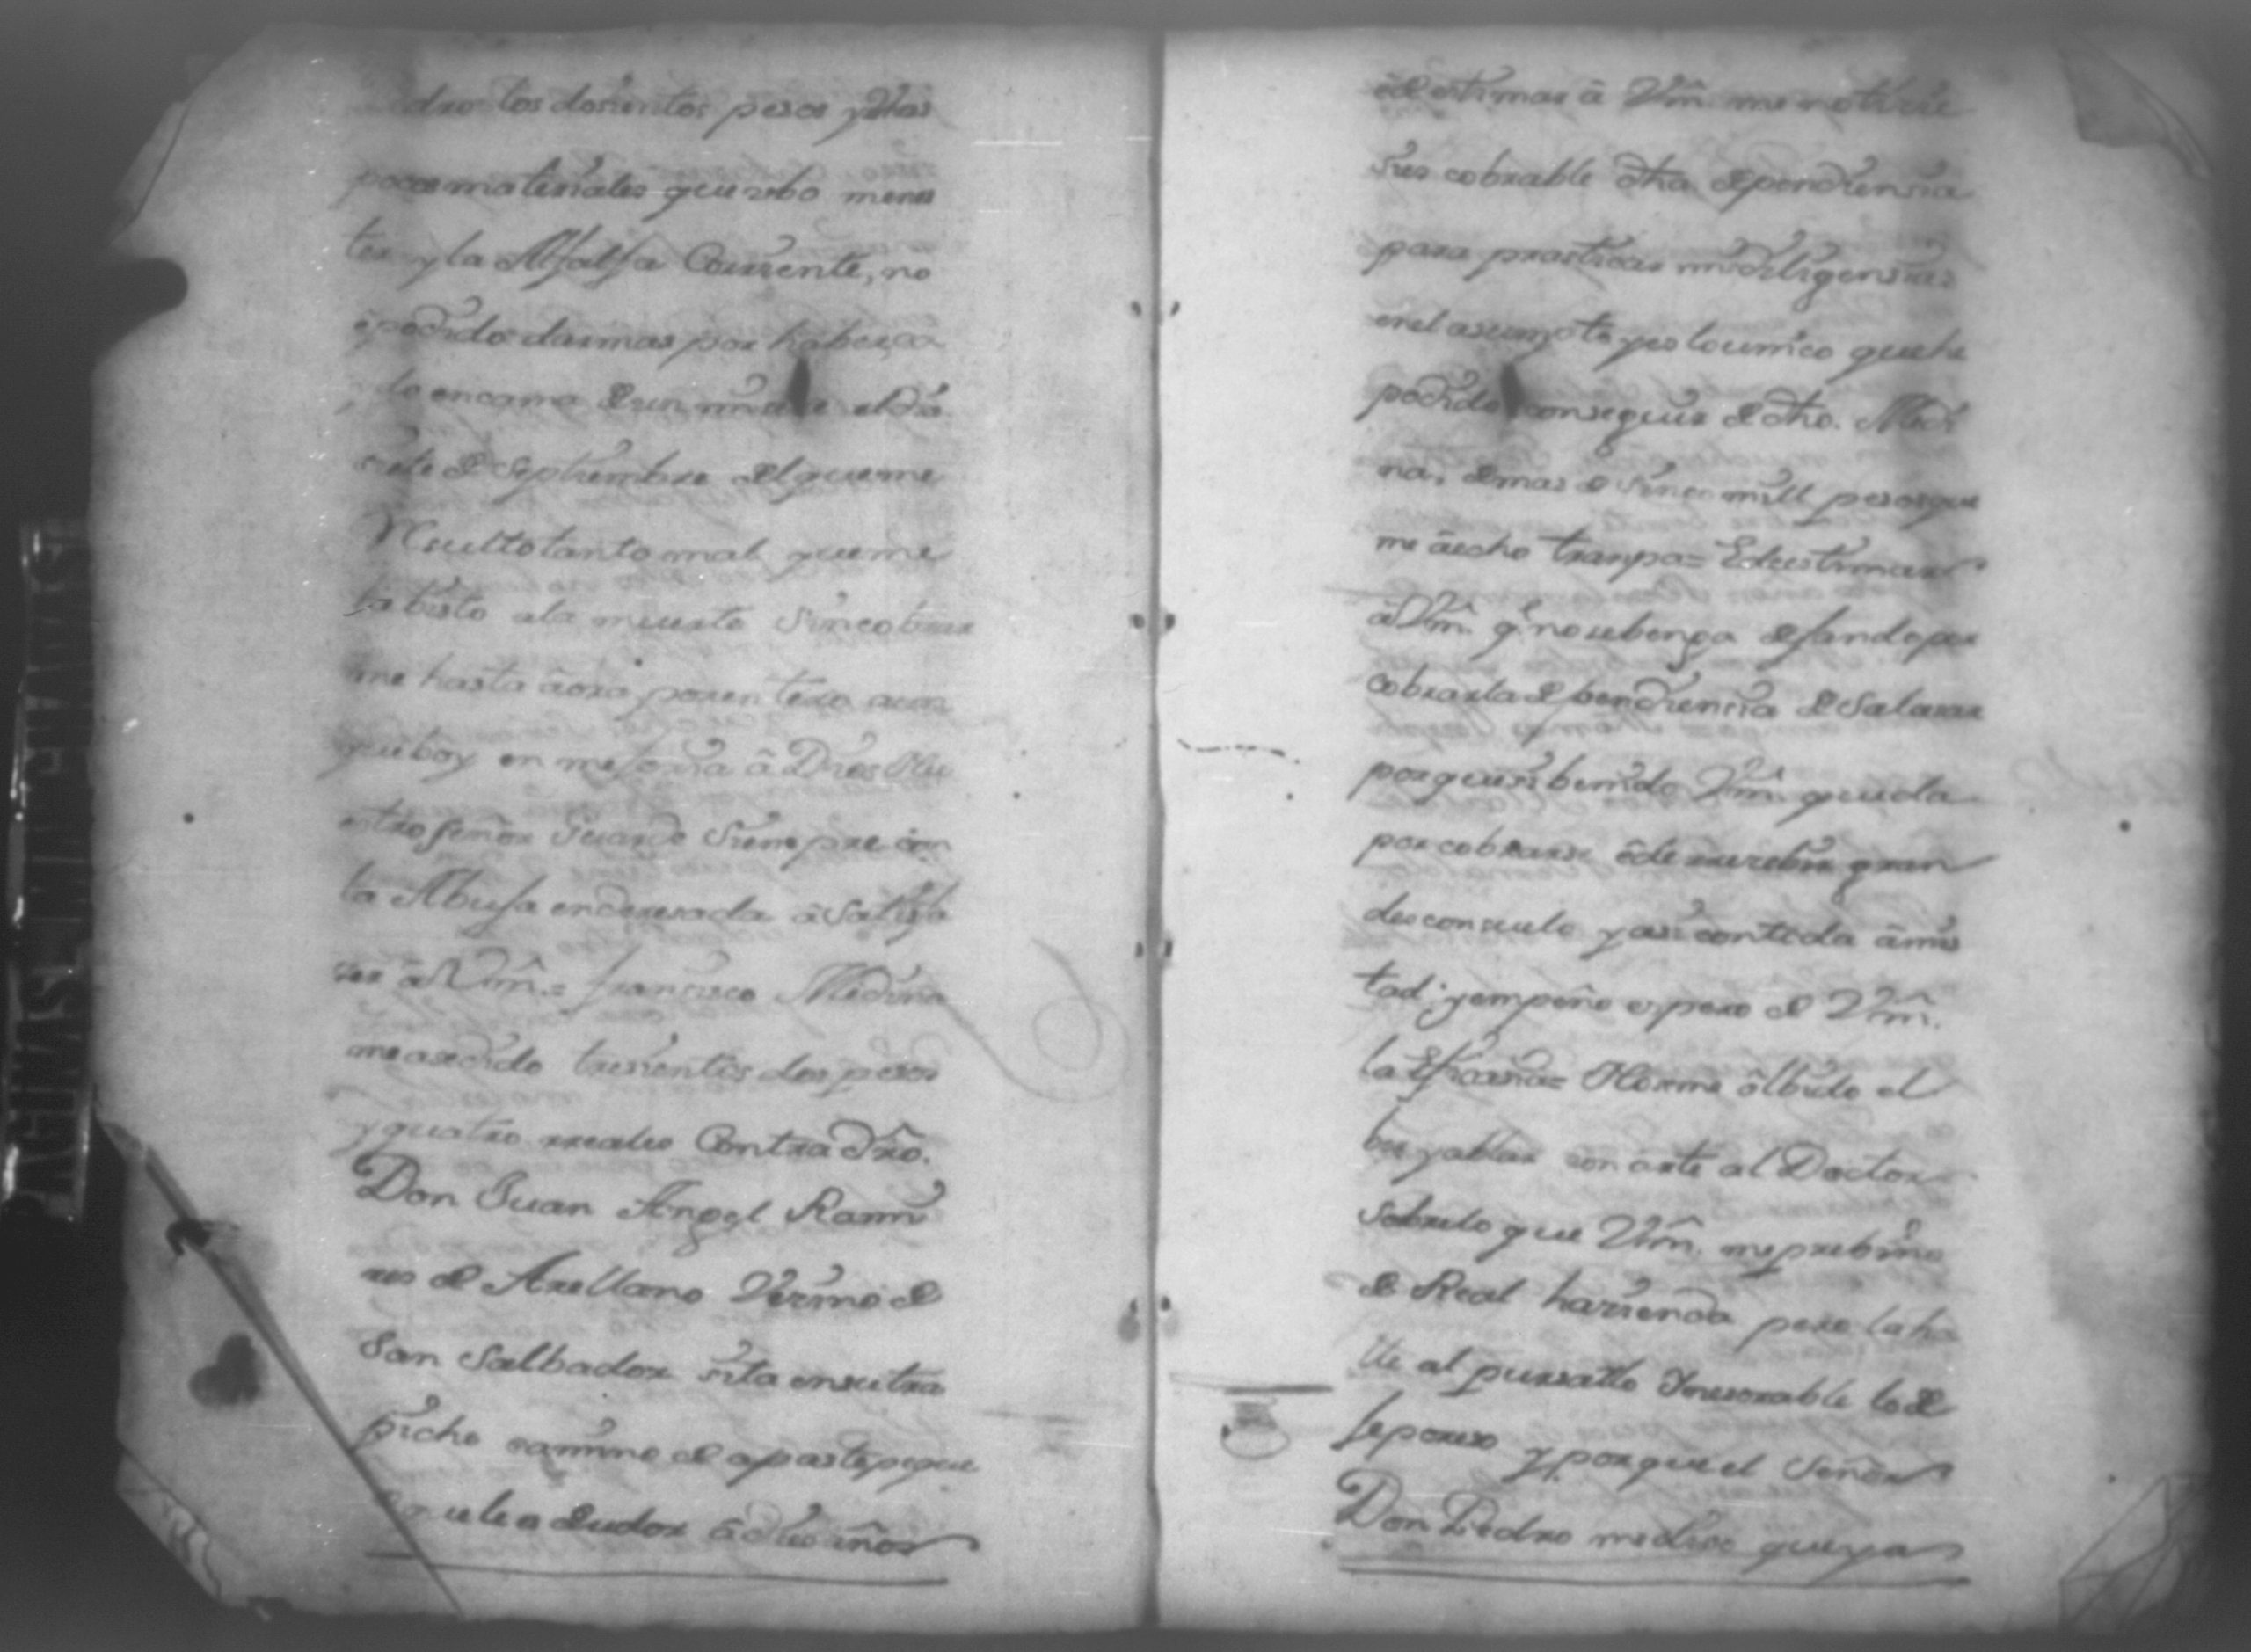 dro los dosientos pesos y otros
pocos materiales que ubo menes
ter y la Alfalfa Corriente, no
è podido dar mas por haber ca
do en cama de un mal el dia
siete de Septiembre del que me
Resulto tanto mal que me
ha bisto a la muerte sin cobrar
me hasta âora por entero aun
que boy en mejoria â Dios Nu
estro Señor Guarde Siempre con
la Abuja enderesada â Satisfa
ser â Vm̃.= francisco Medina
me a sedido tresientos dos pesos
y quatro rreales Contra dr̃o.
Don Juan Angel Rami
res de Arellano Vezino de
San Salbador sita en su tra
piche camino de apastepeque
que le a deudor â dies años
è de estimar â Vm̃. me notisie
si es cobrable dh̃a dependiensia
para practicar mis diligensias
en el asumpto y es lo unico que he
podido conseguir de dh̃o. Medi
na, de mas de sinco mill pesos que
me â echo trampa= E de estimar
â Vm̃. q.e no se benga dejando por
cobrar la dependiensia de Salasar
porque si benido Vm̃. queda
por cobrarse ê de resebir gran
desconsuelo y asi con toda âmis
tad y empeño espero de Vm̃.
la Eficasia= No me ôlbido el
ber y ablar con arte al Doctor
sobre lo que Vm̃. me prebino
de Real hazienda pero la ha
lle al puesto Inesorable lo de
Don Pedro me dise que ya